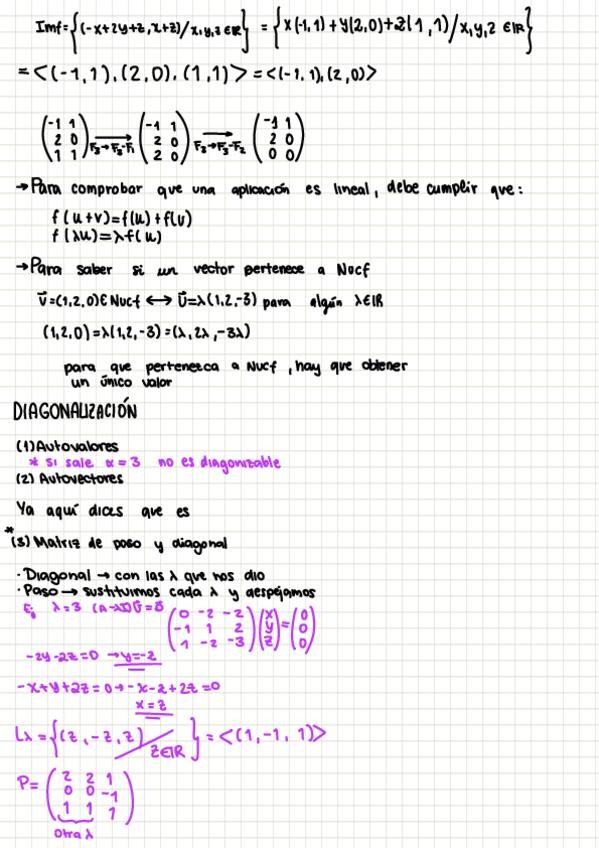 Imf={(-x+2y+z,x+z)/x,y,z∈ℝ} = {x(-1,1)+y(2,0)+z(1,1)/x,y,z∈ℝ}
=<(-1,1),(2,0),(1,1)>=<(-1,1),(2,0)>
(-1 1 / 2 0 / 1 1) F3→F3-F1 (-1 1 / 2 0 / 2 0) F3→F3-F2 (-1 1 / 2 0 / 0 0)
→Para comprobar que una aplicación es lineal, debe cumplir que:
f(u+v)=f(u)+f(v)
f(λu)=λf(u)
→Para saber si un vector pertenece a Nucf
v̄=(1,2,0)∈Nucf ↔ v̄=λ(1,2,-3) para algún λ∈ℝ
(1,2,0)=λ(1,2,-3)=(λ,2λ,-3λ)
para que pertenezca a Nucf, hay que obtener
un único valor
DIAGONALIZACIÓN
(1)Autovalores
* si sale α=3 no es diagonizable
(2) Autovectores
Ya aquí dices que es
*
(3) Matriz de paso y diagonal
·Diagonal → con las λ que nos dio
·Paso → sustituimos cada λ y despejamos
Ej λ=3 (A-λI)v̄=0̄ (0 -2 -2 / -1 1 2 / 1 -2 -3)(x / y / z)=(0 / 0 / 0)
-2y-2z=0 →y=-z
-x+y+2z=0→-x-z+2z=0
x=z
Lλ={(z,-z,z)/z∈ℝ}=<(1,-1,1)>
P=(2 2 1 / 0 0 -1 / 1 1 1)
Otra λ